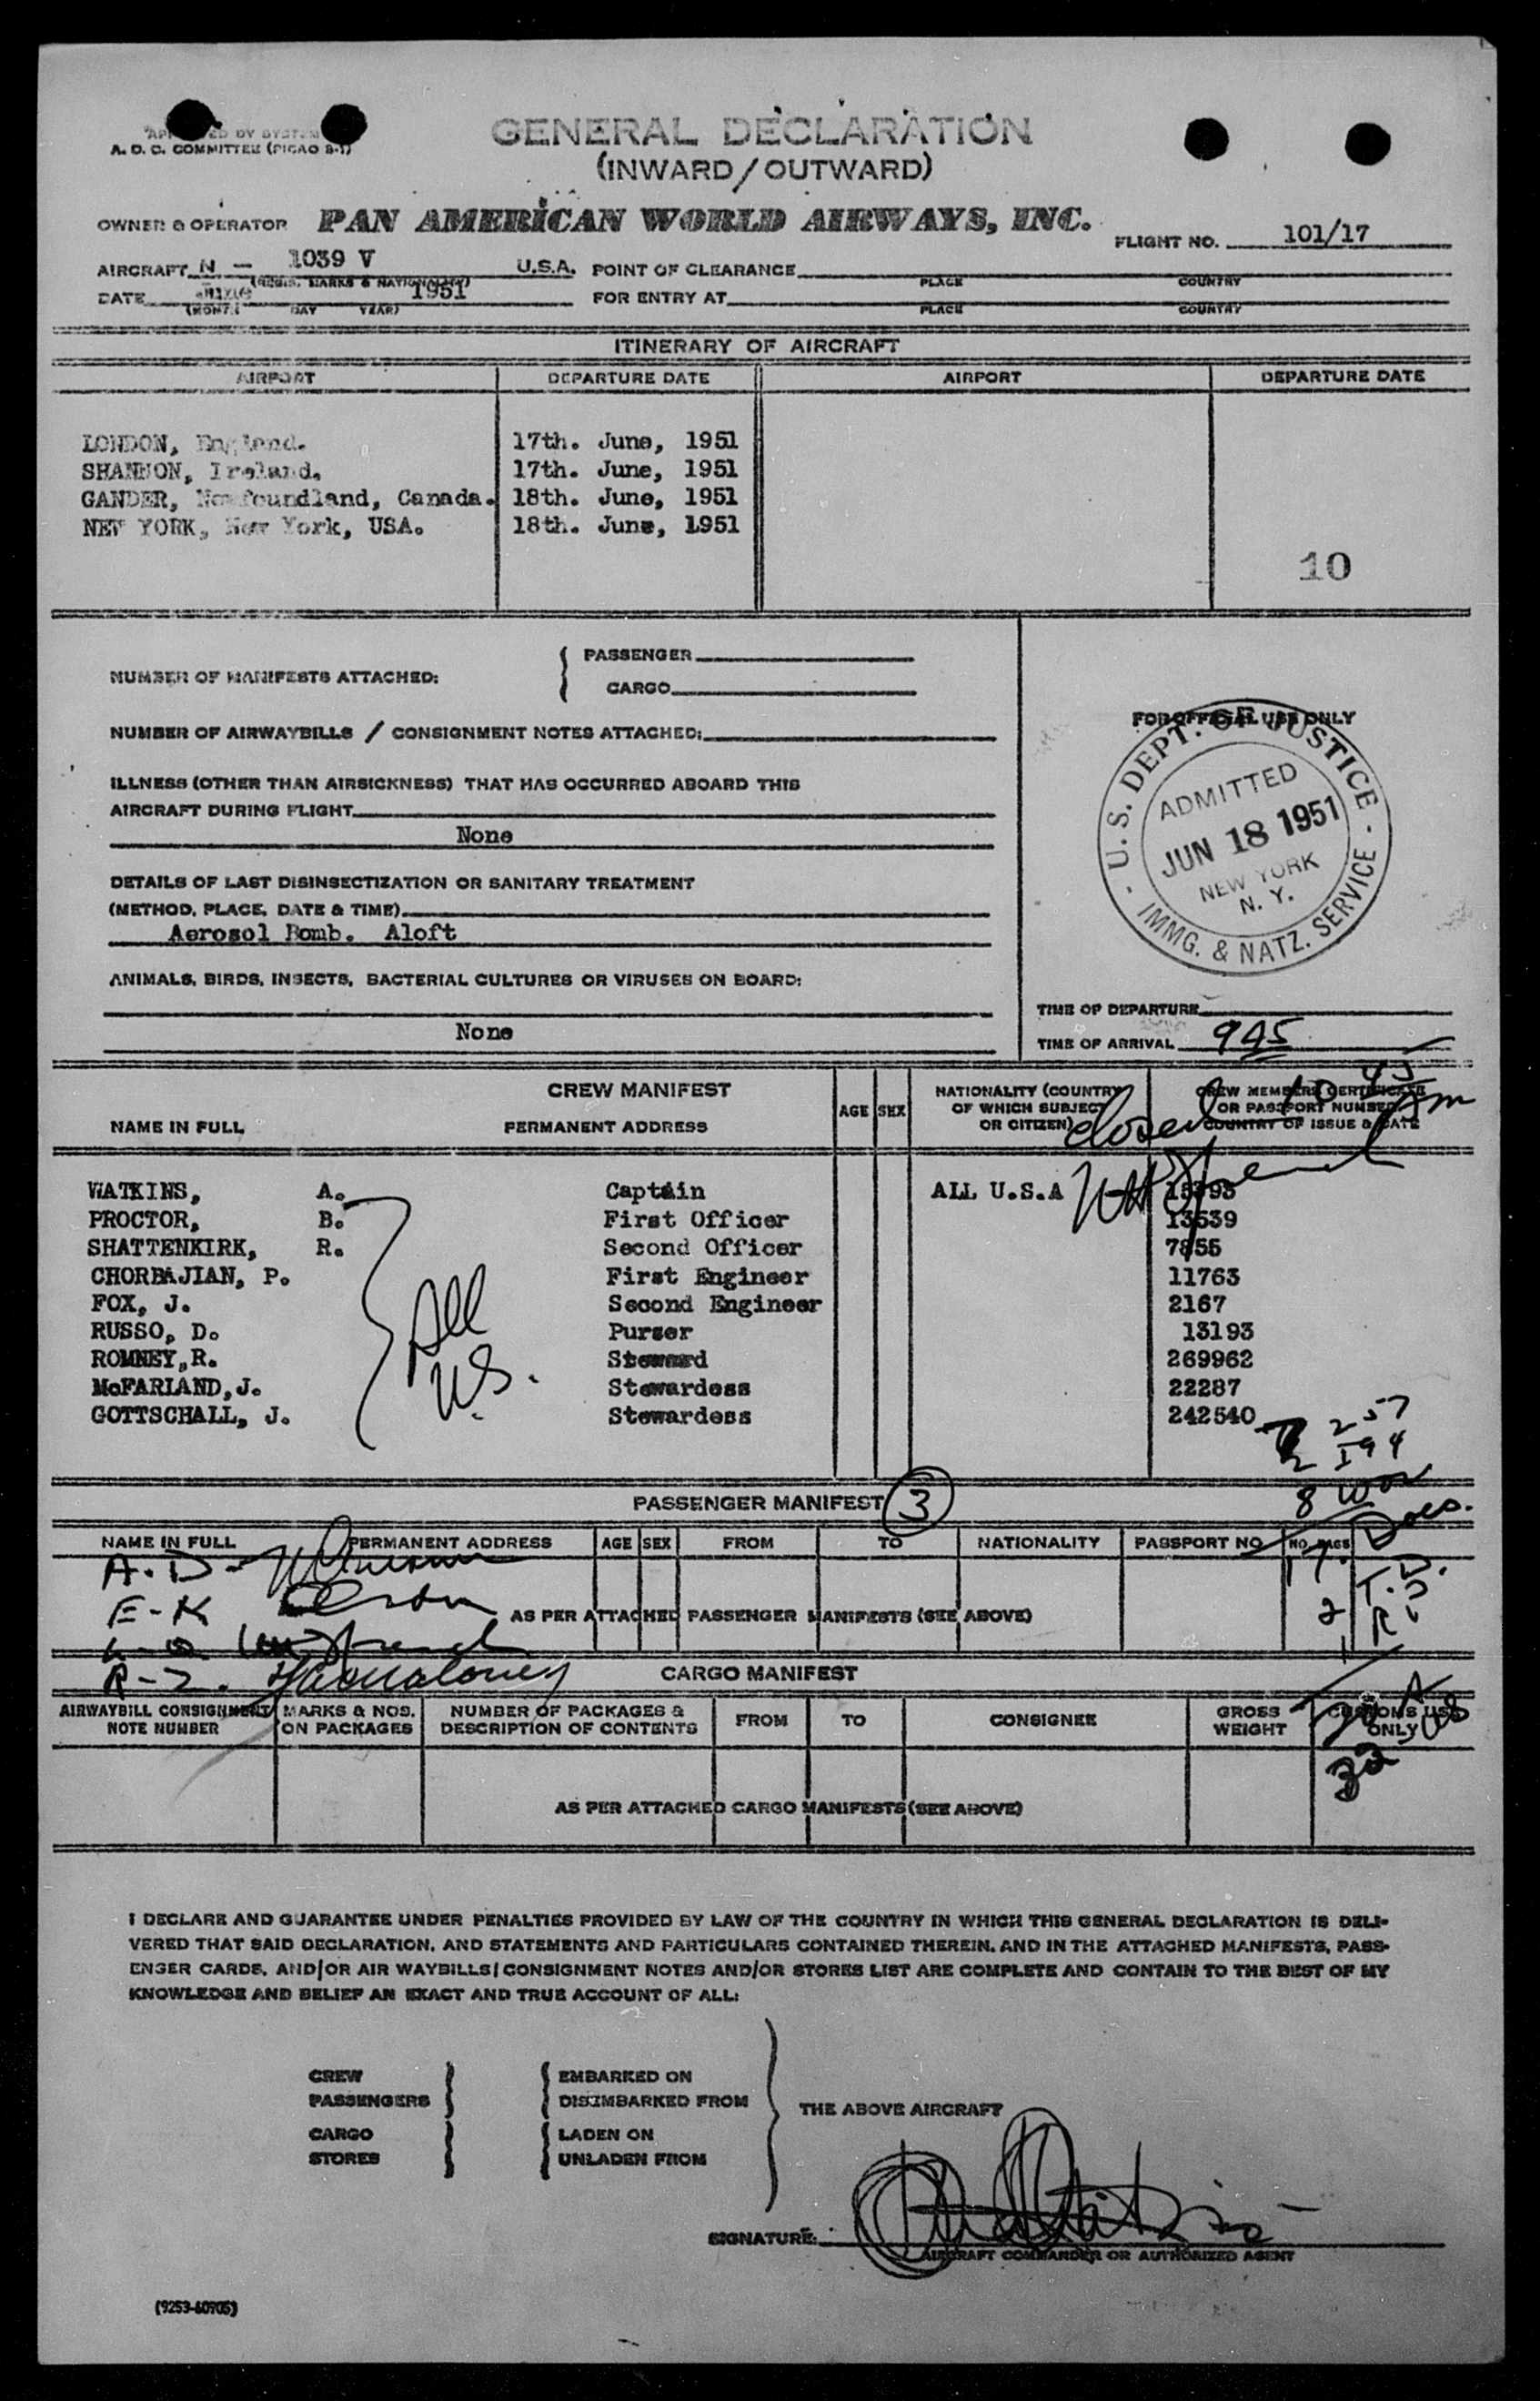 A. O. C. COMMITTEE (PICAO B-1)
GENERAL DECLARATION
(INWARD/OUTWARD)
OWNER & OPERATOR PAN AMERICAN WORLD AIRWAYS, INC.
FLIGHT NO. 101/17
AIRCRAFT N - 1039 V U.S.A. POINT OF CLEARANCE
(REGIS. MARKS & NATIONALITY) PLACE COUNTRY
DATE 1951 FOR ENTRY AT
(MONTH DAY YEAR) PLACE COUNTRY
ITINERARY OF AIRCRAFT
AIRPORT DEPARTURE DATE AIRPORT DEPARTURE DATE
LONDON, England. 17th. June, 1951
SHANNON, Ireland. 17th. June, 1951
GANDER, Newfoundland, Canada. 18th. June, 1951
NEW YORK, New York, USA. 18th. June, 1951
10
NUMBER OF MANIFESTS ATTACHED: PASSENGER
CARGO
NUMBER OF AIRWAYBILLS / CONSIGNMENT NOTES ATTACHED:
FOR OFFICIAL USE ONLY
ILLNESS (OTHER THAN AIRSICKNESS) THAT HAS OCCURRED ABOARD THIS
AIRCRAFT DURING FLIGHT
None
U.S. DEPT. OF JUSTICE
ADMITTED
JUN 18 1951
NEW YORK
N. Y.
IMMG. & NATZ. SERVICE
DETAILS OF LAST DISINSECTIZATION OR SANITARY TREATMENT
(METHOD, PLACE, DATE & TIME)
Aerosol Bomb. Aloft
ANIMALS, BIRDS, INSECTS, BACTERIAL CULTURES OR VIRUSES ON BOARD:
None
TIME OF DEPARTURE
TIME OF ARRIVAL 945
CREW MANIFEST
NAME IN FULL PERMANENT ADDRESS AGE SEX NATIONALITY (COUNTRY OF WHICH SUBJECT OR CITIZEN) CREW MEMBERS CERTIFICATE OR PASSPORT NUMBER COUNTRY OF ISSUE & DATE
closed
WATKINS, A. Captain ALL U.S.A 15393
PROCTOR, B. First Officer 13539
SHATTENKIRK, R. Second Officer 7855
CHORBAJIAN, P. First Engineer 11763
FOX, J. Second Engineer 2167
RUSSO, D. Purser 13193
ROMNEY,R. Steward 269962
McFARLAND,J. Stewardess 22287
GOTTSCHALL, J. Stewardess 242540
All
U.S.
257
194
PASSENGER MANIFEST 3
8
Docs.
NAME IN FULL PERMANENT ADDRESS AGE SEX FROM TO NATIONALITY PASSPORT NO NO. BAGS
A.-D-
E-K Olson
AS PER ATTACHED PASSENGER MANIFESTS (SEE ABOVE)
2
R-Z.
CARGO MANIFEST
AIRWAYBILL CONSIGNMENT NOTE NUMBER MARKS & NOS. ON PACKAGES NUMBER OF PACKAGES & DESCRIPTION OF CONTENTS FROM TO CONSIGNEE GROSS WEIGHT CUSTOMS USE ONLY
32
AS PER ATTACHED CARGO MANIFESTS (SEE ABOVE)
I DECLARE AND GUARANTEE UNDER PENALTIES PROVIDED BY LAW OF THE COUNTRY IN WHICH THIS GENERAL DECLARATION IS DELI-
VERED THAT SAID DECLARATION, AND STATEMENTS AND PARTICULARS CONTAINED THEREIN, AND IN THE ATTACHED MANIFESTS, PASS-
ENGER CARDS, AND/OR AIR WAYBILLS/CONSIGNMENT NOTES AND/OR STORES LIST ARE COMPLETE AND CONTAIN TO THE BEST OF MY
KNOWLEDGE AND BELIEF AN EXACT AND TRUE ACCOUNT OF ALL:
CREW EMBARKED ON
PASSENGERS DISIMBARKED FROM
THE ABOVE AIRCRAFT
CARGO LADEN ON
STORES UNLADEN FROM
SIGNATURE:
AIRCRAFT COMMANDER OR AUTHORIZED AGENT
(9253-60905)